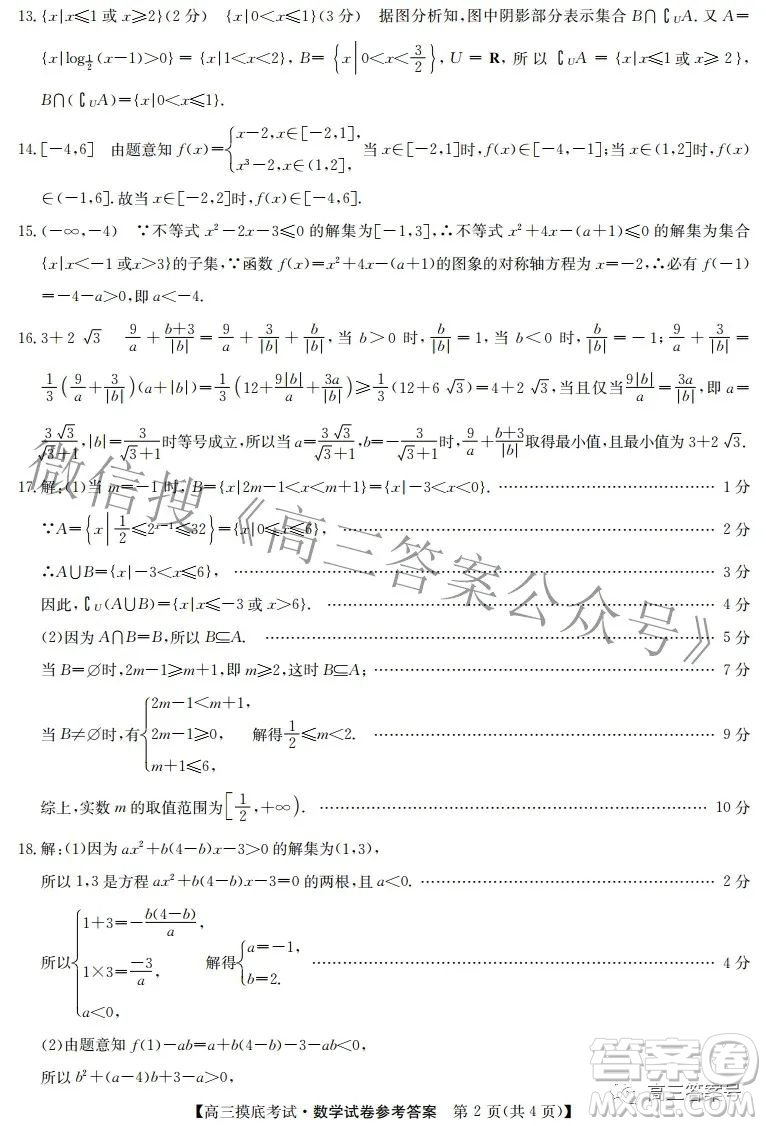 13.{x|x⩽1或x⩾2}(2分) {x|0<x⩽1}(3分) 据图分析知,图中阴影部分表示集合B∩∁UA.又A=
{x|log½(x−1)>0}={x|1<x<2}, B={x|0<x<3/2}, U=R, 所以∁UA={x|x⩽1或x⩾2},
B∩(∁UA)={x|0<x⩽1}.
14.[−4,6] 由题意知f(x)={x−2,x∈[−2,1], x³−2,x∈(1,2], 当x∈[−2,1]时,f(x)∈[−4,−1];当x∈(1,2]时,f(x)
∈(−1,6].故当x∈[−2,2]时,f(x)∈[−4,6].
15.(−∞,−4) ∵不等式x²−2x−3⩽0的解集为[−1,3],∴不等式x²+4x−(a+1)⩽0的解集为集合
{x|x<−1或x>3}的子集,∵函数f(x)=x²+4x−(a+1)的图象的对称轴方程为x=−2,∴必有f(−1)
=−4−a>0,即a<−4.
16.3+2√3 9/a+(b+3)/|b|=9/a+3/|b|+b/|b|,当b>0时,b/|b|=1,当b<0时,b/|b|=−1;9/a+3/|b|=
1/3(9/a+3/|b|)(a+|b|)=1/3(12+9|b|/a+3a/|b|)⩾1/3(12+6√3)=4+2√3,当且仅当9|b|/a=3a/|b|,即a=
3√3/(√3+1),|b|=3/(√3+1)时等号成立,所以当a=3√3/(√3+1),b=−3/(√3+1)时,9/a+(b+3)/|b|取得最小值,且最小值为3+2√3.
17.解:(1)当m=−1时,B={x|2m−1<x<m+1}={x|−3<x<0}. 1分
∵A={x|1/2⩽2ˣ⁻¹⩽32}={x|0⩽x⩽6}, 2分
∴A∪B={x|−3<x⩽6}, 3分
因此,∁U(A∪B)={x|x⩽−3或x>6}. 4分
(2)因为A∩B=B,所以B⊆A. 5分
当B=∅时,2m−1⩾m+1,即m⩾2,这时B⊆A; 7分
当B≠∅时,有{2m−1<m+1, 2m−1⩾0, m+1⩽6, 解得1/2⩽m<2. 9分
综上,实数m的取值范围为[1/2,+∞). 10分
18.解:(1)因为ax²+b(4−b)x−3>0的解集为(1,3),
所以1,3是方程ax²+b(4−b)x−3=0的两根,且a<0. 2分
所以{1+3=−b(4−b)/a, 1×3=−3/a, a<0, 解得{a=−1, b=2. 4分
(2)由题意知f(1)−ab=a+b(4−b)−3−ab<0,
所以b²+(a−4)b+3−a>0,
【高三摸底考试·数学试卷参考答案 第2页(共4页)】
微信搜《高三答案公众号》
答案圈
高三答案号